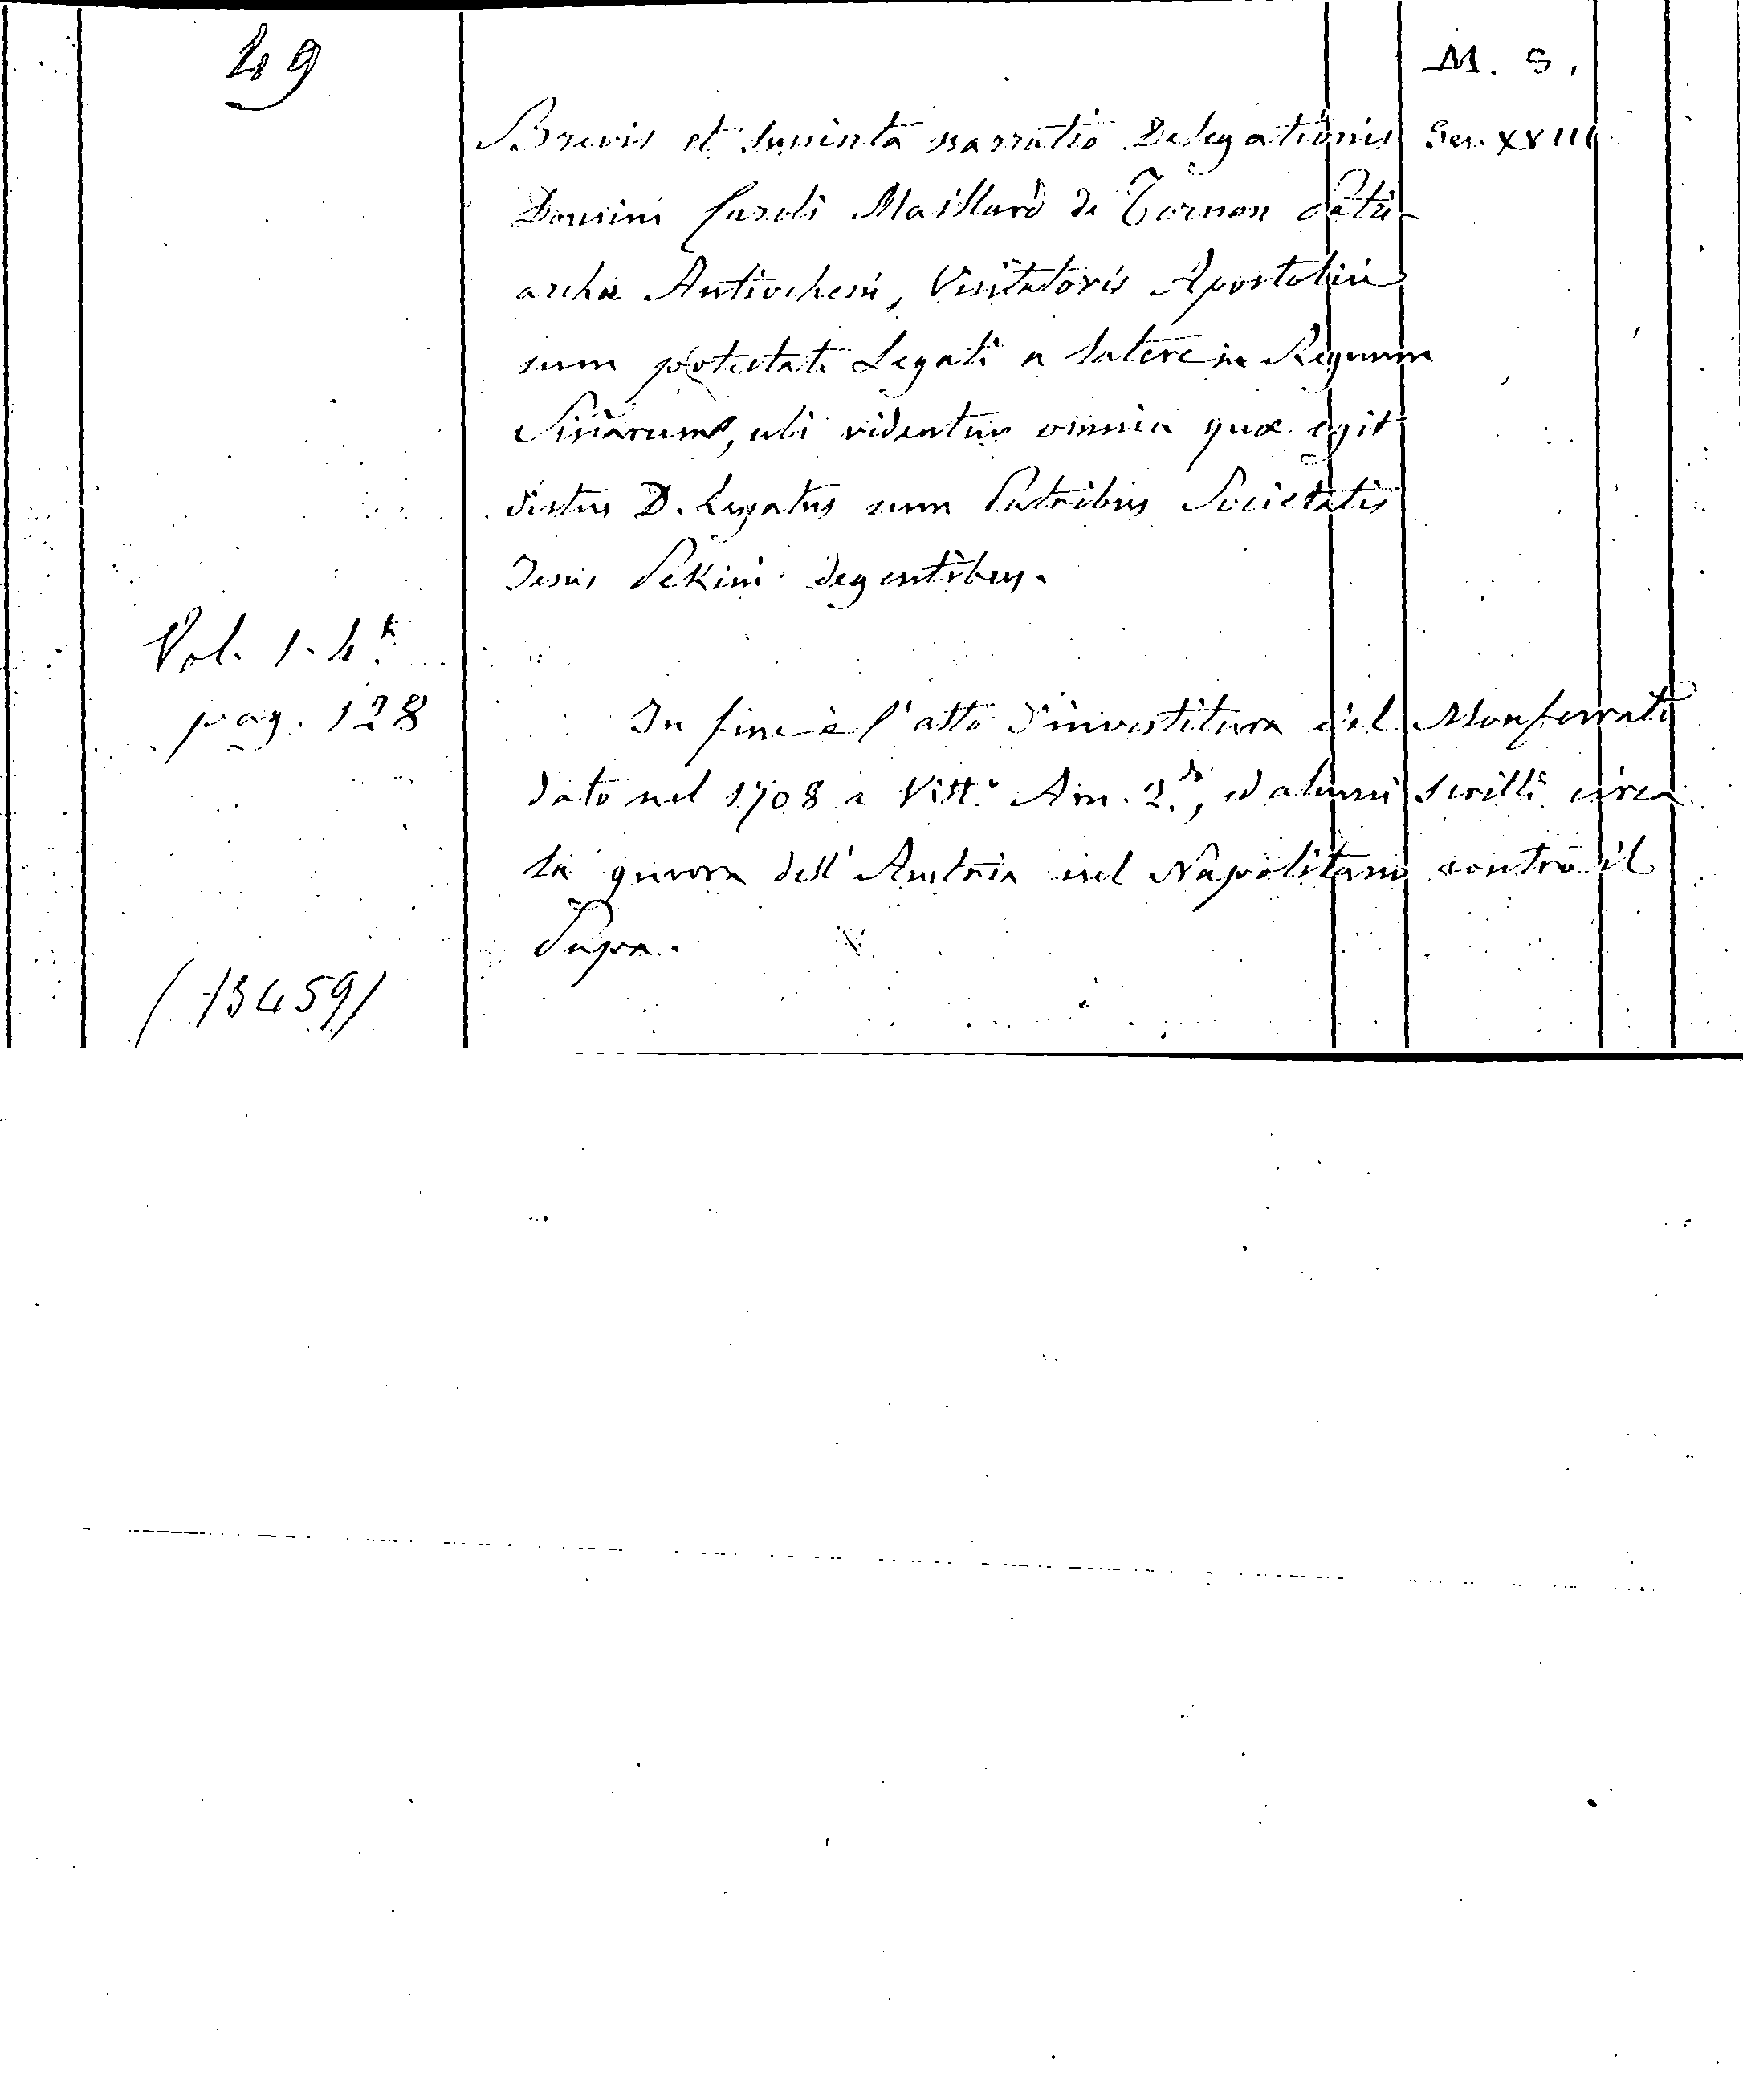 49
M. S.
Brevis et succinta narratio Delegationis
Sec. XVIII
Domini Caroli Maillard de Tornon Patri-
archæ Antiocheni, Visitatoris Apostolici
cum potestate Legati a latere in Regnum
Sinarum, ubi videntur omnia quæ egit
dictus D. Legatus cum Patribus Societatis
Jesus Pekini degentibus.
Vol. 1. 4.º
pag. 128
In fine è l'atto d'investitura del Monferrato
dato nel 1708 a Vitt.º Am. 2.do, ed alcuni scritti circa
la guerra dell'Austria nel Napolitano contro il
Papa.
(13459)